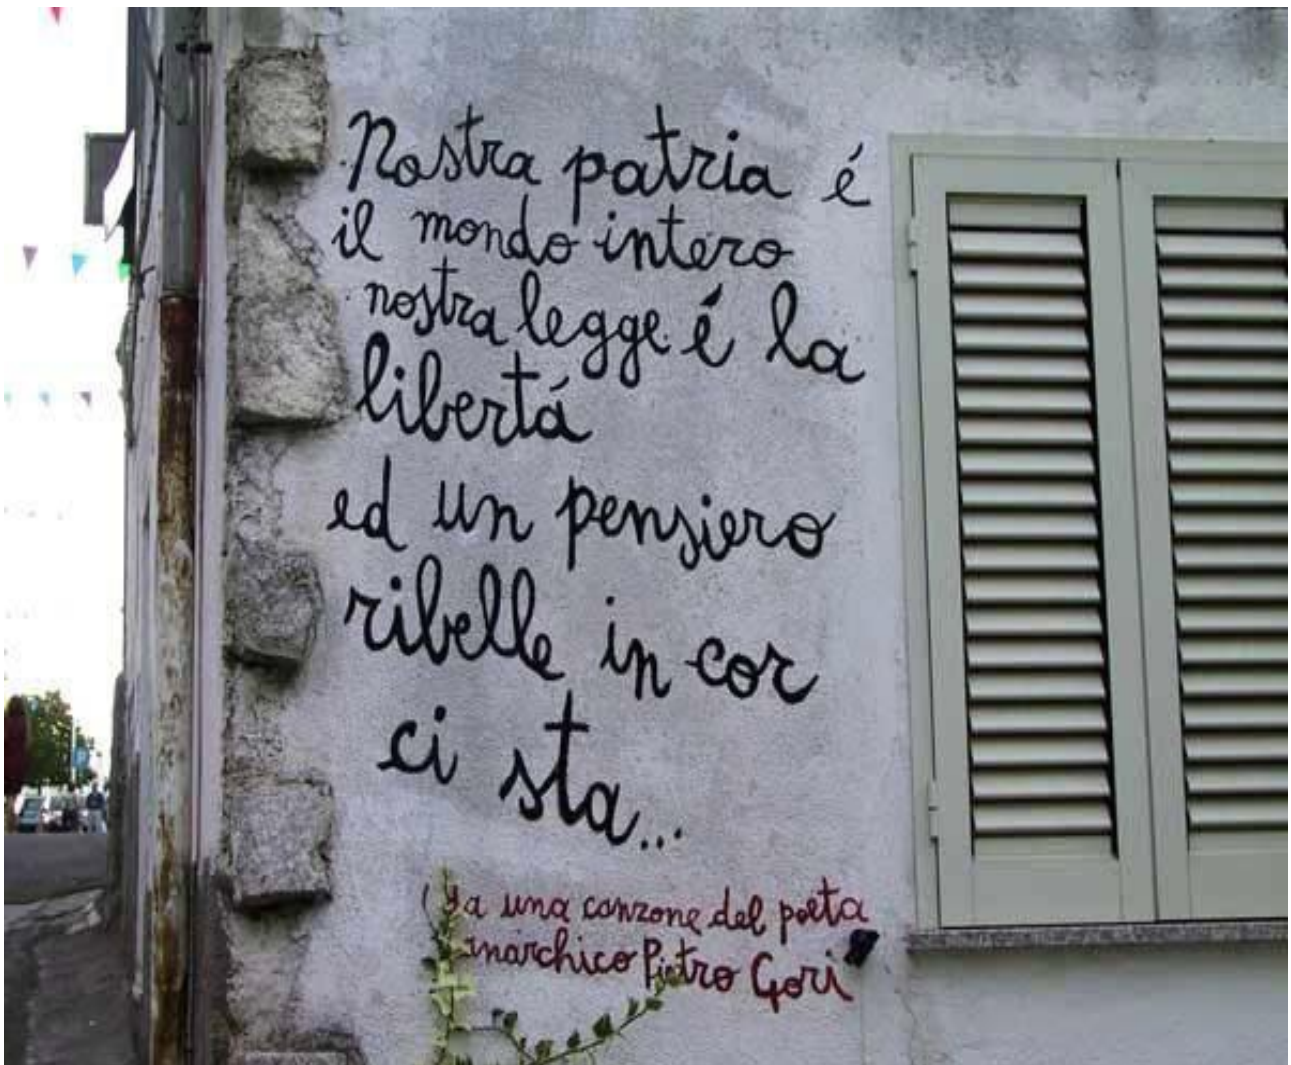 Nostra patria é
il mondo intero
nostra legge é la
libertá
ed un pensiero
ribelle in cor
ci sta...
(Da una canzone del poeta
anarchico Pietro Gori